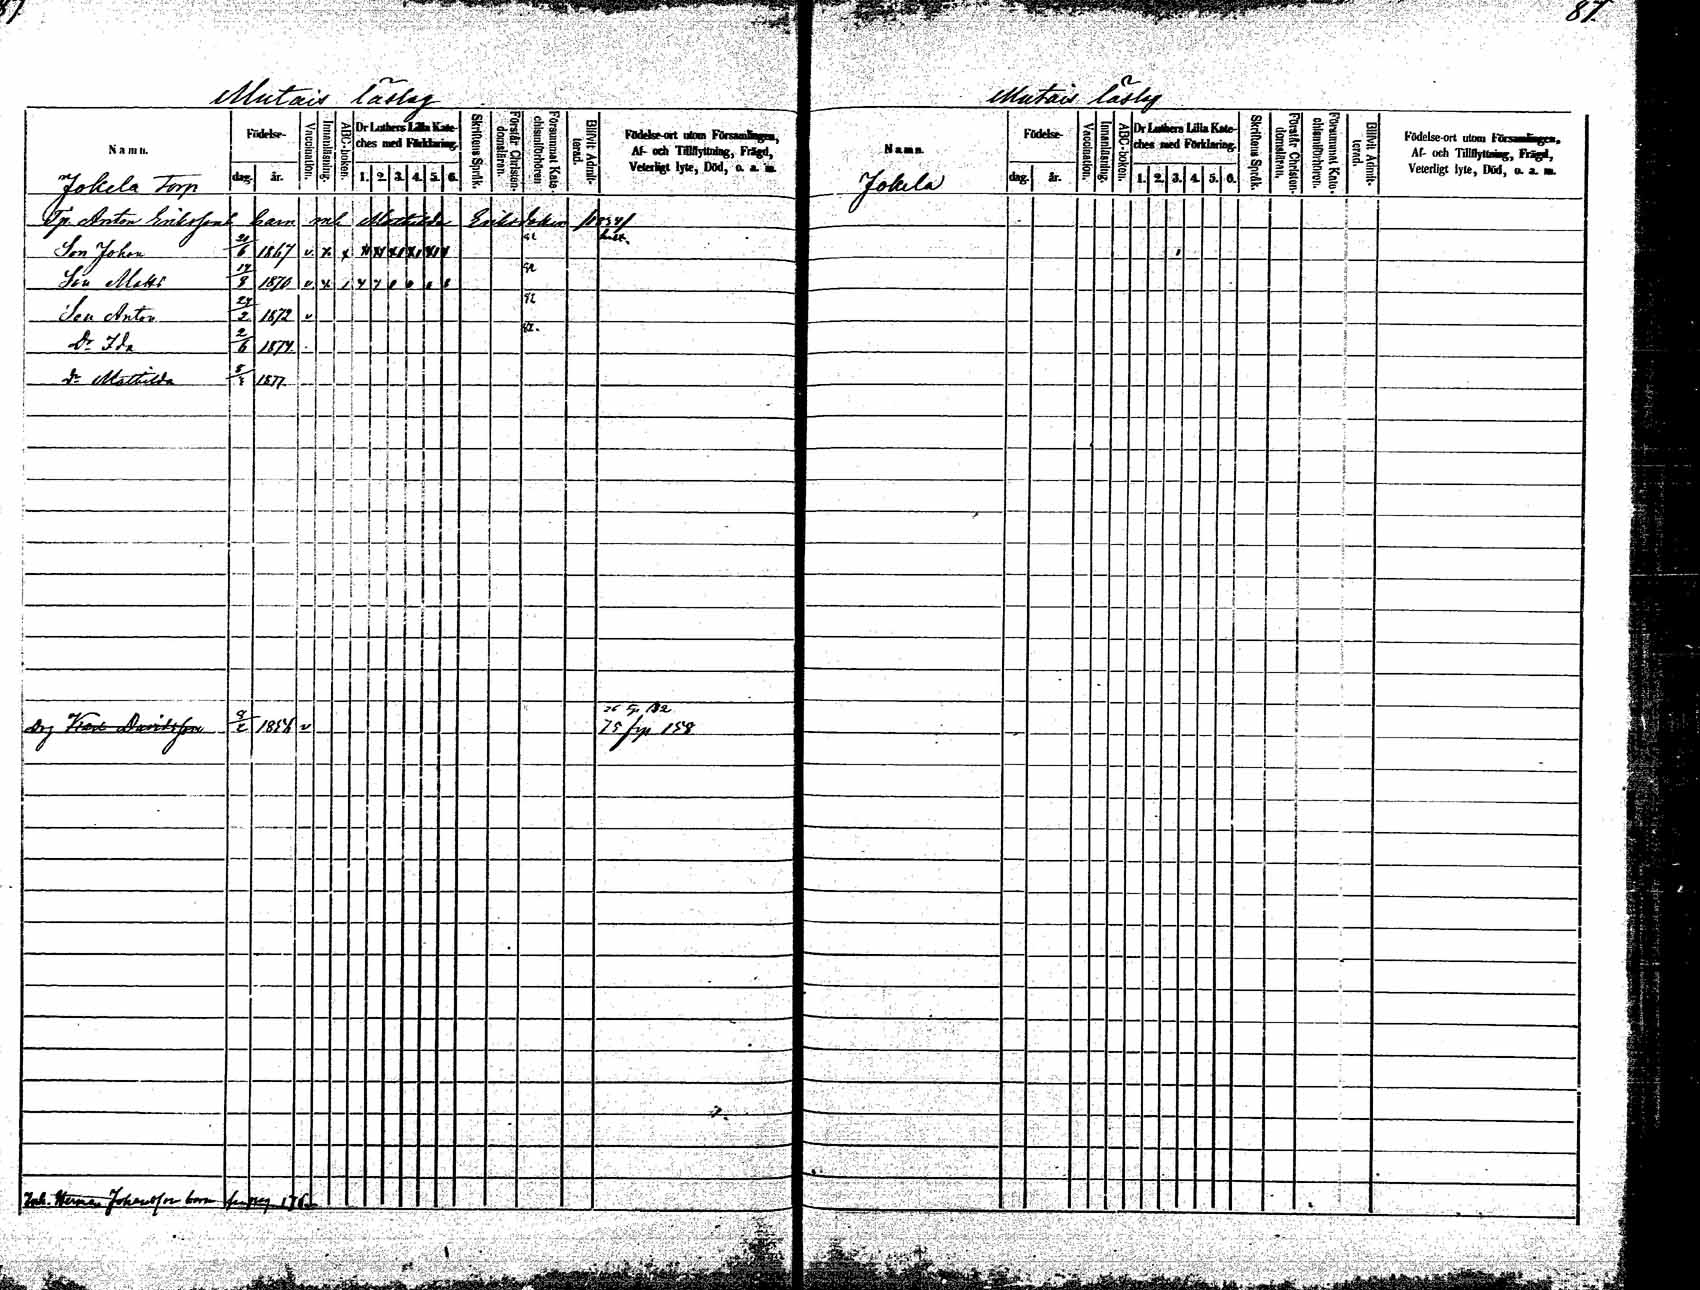 87.
Mutais läslag
Namn.
Födelse-
dag. år.
Vaccination.
Innanläsning.
ABC-boken.
Dr Luthers Lilla Kate-
ches med Förklaring.
1. 2. 3. 4. 5. 6.
Skriftens Språk.
Förstår Christen-
domsläran.
Försummat Kate-
chismiförhören
Blifvit Admit-
terad.
Födelse-ort utom Församlingen,
Af- och Tillflyttning, Frägd,
Veterligt lyte, Död, o. a. m.
Jokela Torp
Tp. Anton Erikssons barn m. h. Mathilda Eriksdotter /1834/
Son Johan 20/6 1867 v
Son Matts 17/8 1870 v
Son Anton 24/2 1872 v
Dr Ida 2/6 1874
Dr Mathilda 1877
Drg Karl Davidsson 1856 v 75 fyr 158
Inh. Herman Johansson barn 176
87.
Mutais läslag
Namn.
Födelse-
dag. år.
Vaccination.
Innanläsning.
ABC-boken.
Dr Luthers Lilla Kate-
ches med Förklaring.
1. 2. 3. 4. 5. 6.
Skriftens Språk.
Förstår Christen-
domsläran.
Försummat Kate-
chismiförhören.
Blifvit Admit-
terad.
Födelse-ort utom Församlingen,
Af- och Tillflyttning, Frägd,
Veterligt lyte, Död, o. a. m.
Jokela